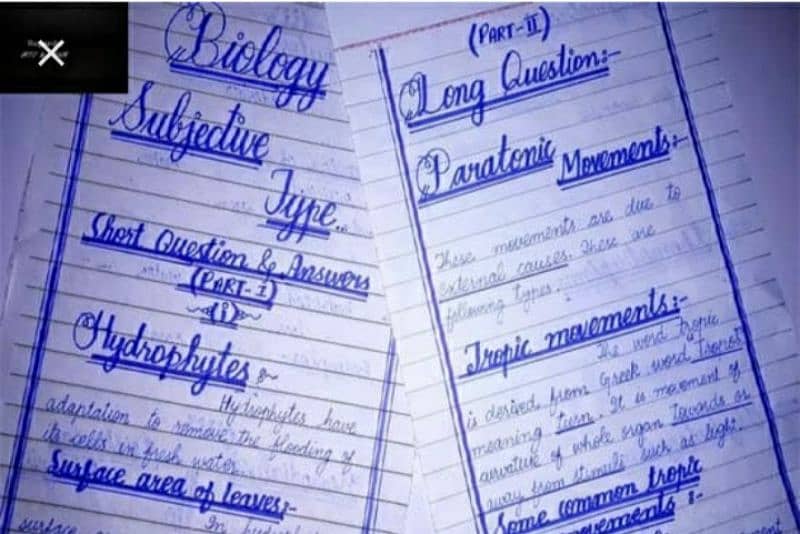 Biology
Subjective
Type..
Short Question & Answers
(PART-I)
(i)
Hydrophytes
Hydrophytes have
adaptation to remove the flooding of
its cells in fresh water.
Surface area of leaves:-
In
surface
(PART-II)
Long Question:-
Paratonic Movements:-
These movements are due to
external causes. These are
following types.
Tropic movements:-
The word tropic
is derived from Greek word "Tropos"
meaning turn. It is movement of
curvature of whole organ towards or
away from stimuli such as light.
Some common tropic
movements :-